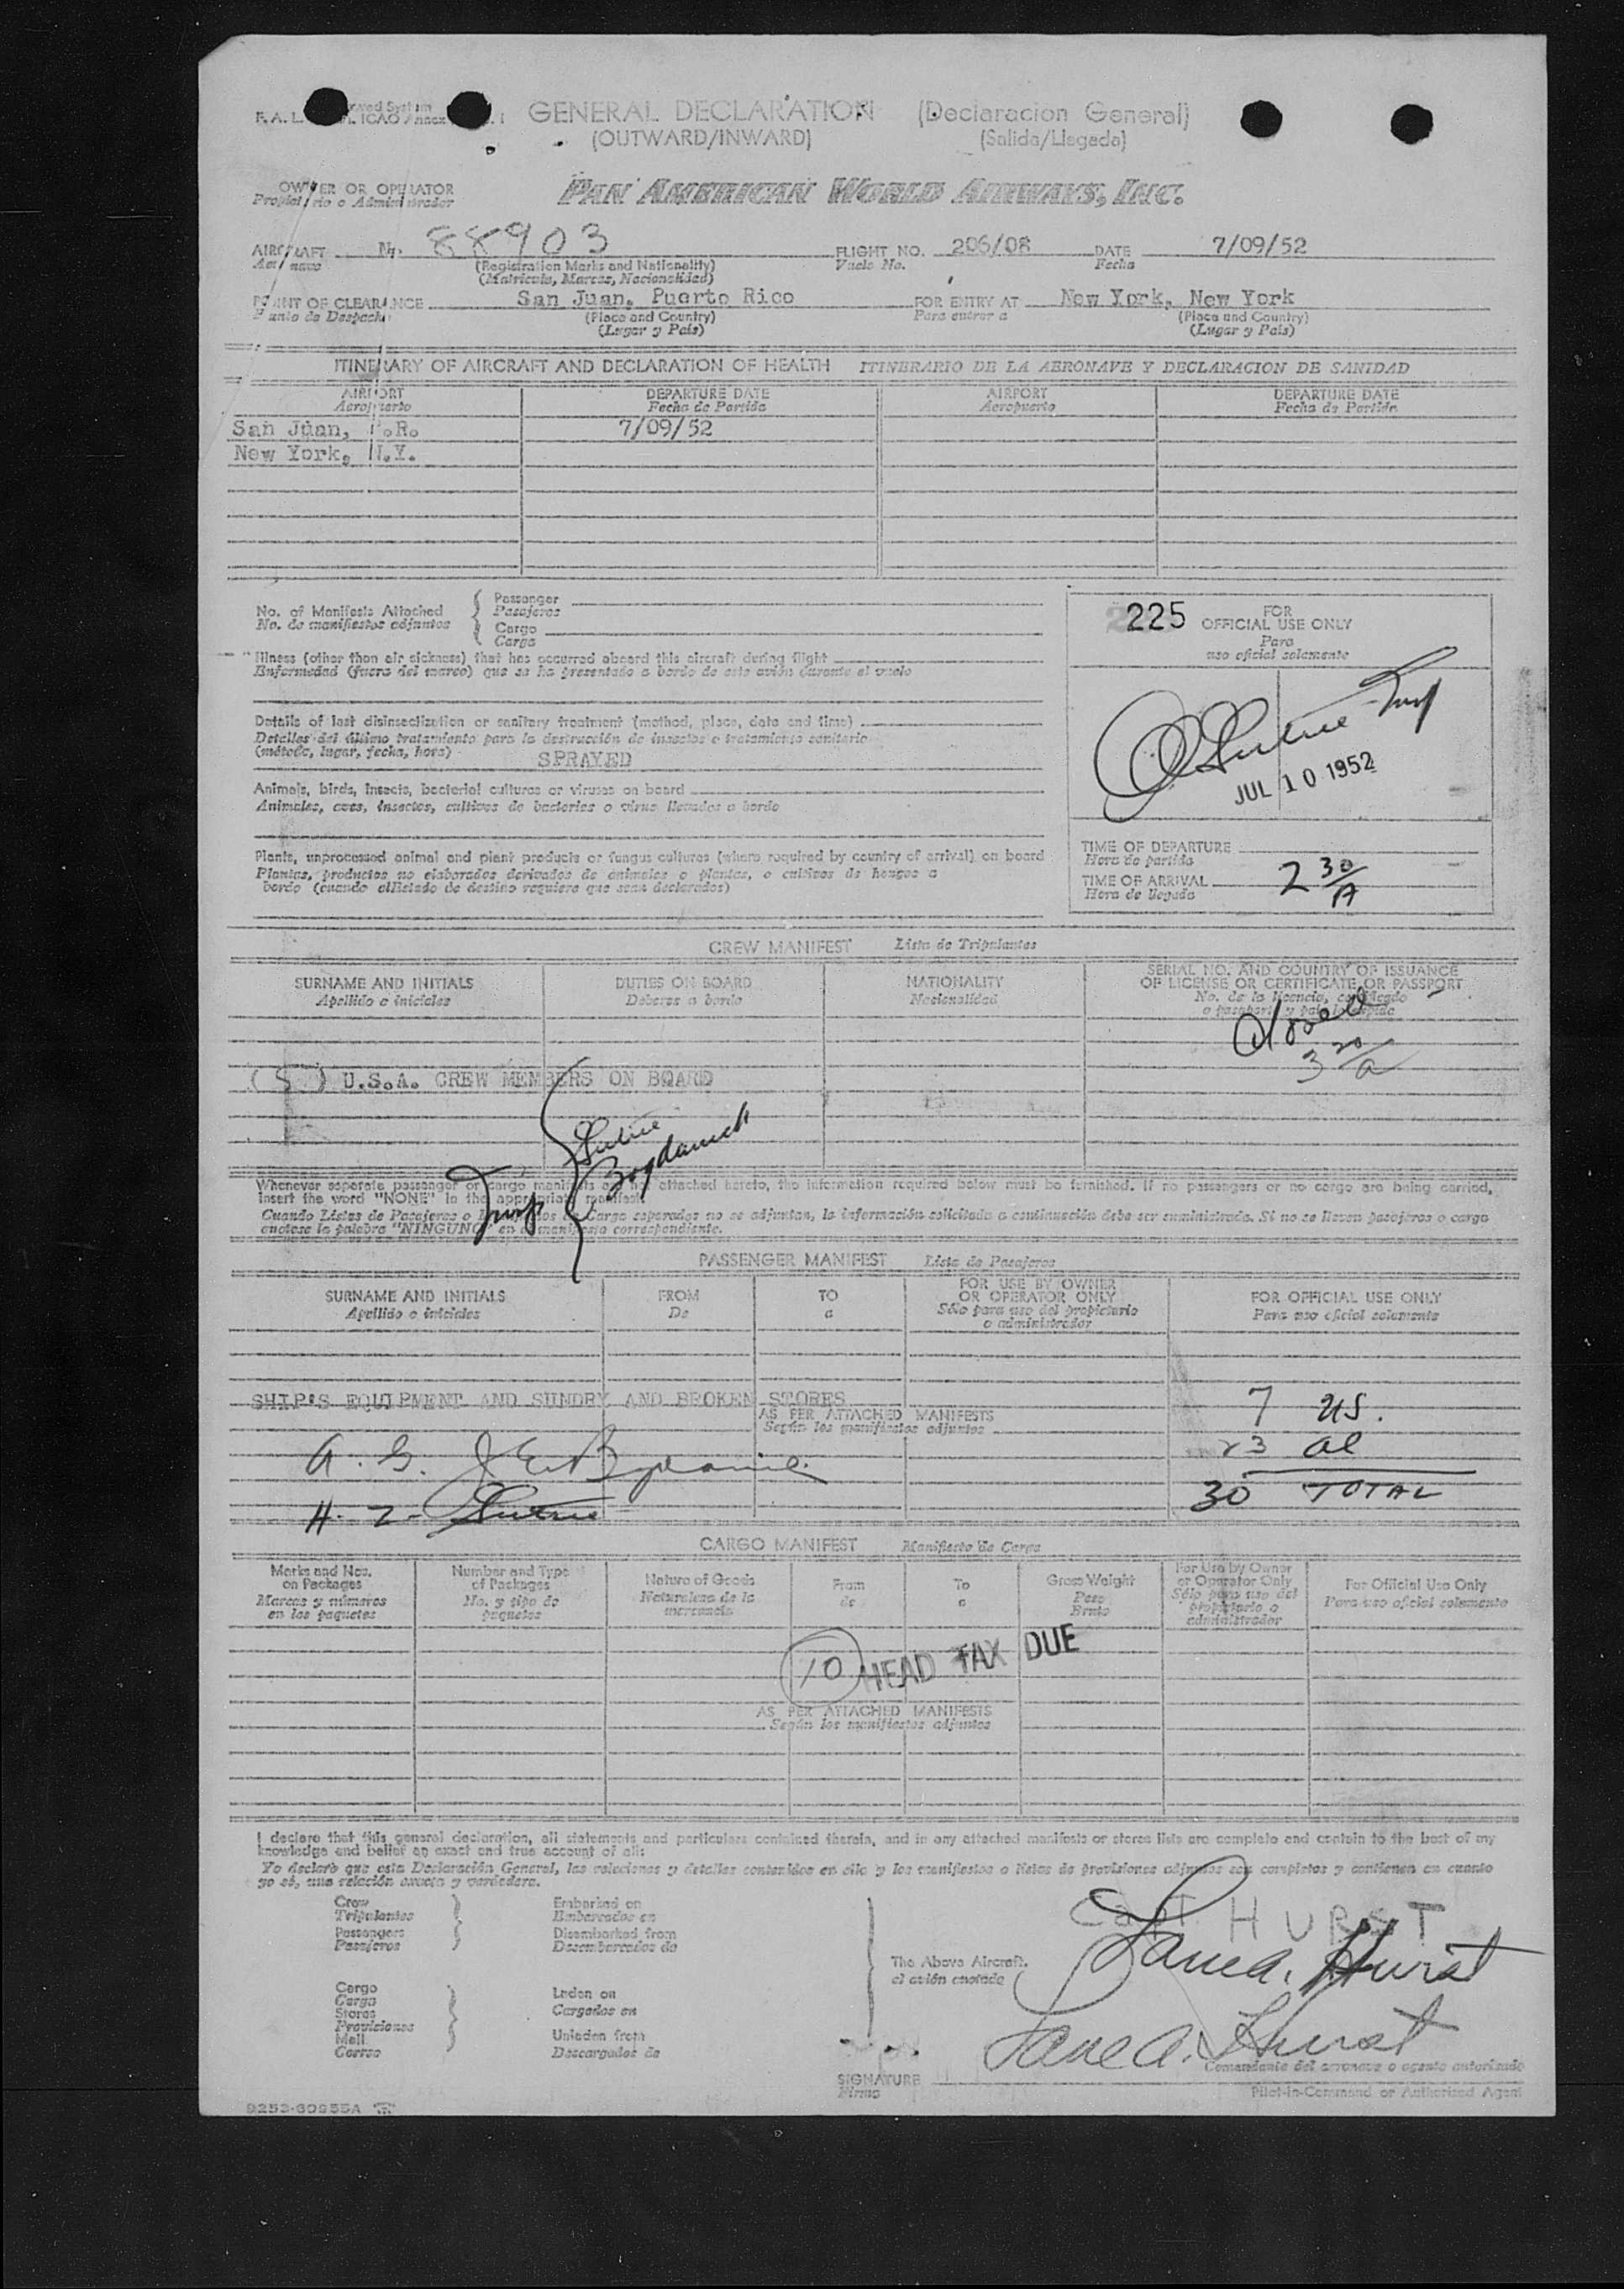 GENERAL DECLARATION (Declaracion General)
(OUTWARD/INWARD) (Salida/Llegada)
OWNER OR OPERATOR PAN AMERICAN WORLD AIRWAYS, INC.
AIRCRAFT N. 88903 FLIGHT NO. 206/08 DATE 7/09/52
Vuelo No. Fecha
(Registration Marks and Nationality)
(Matricula, Marcas, Nacionalidad)
POINT OF CLEARANCE San Juan, Puerto Rico FOR ENTRY AT New York, New York
Punto de Despacho (Place and Country) Para entrar a (Place and Country)
(Lugar y País) (Lugar y País)
ITINERARY OF AIRCRAFT AND DECLARATION OF HEALTH ITINERARIO DE LA AERONAVE Y DECLARACION DE SANIDAD
AIRPORT DEPARTURE DATE AIRPORT DEPARTURE DATE
Aeropuerto Fecha de Partida Aeropuerto Fecha de Partida
San Juan, P.R. 7/09/52
New York, N.Y.
No. of Manifests Attached
No. de manifiestos adjuntos
Passenger
Pasajeros
Cargo
Carga
225 FOR OFFICIAL USE ONLY
Para uso oficial solamente
Illness (other than air sickness) that has occurred aboard this aircraft during flight
Enfermedad (fuera del mareo) que se ha presentado a bordo de este avión durante el vuelo
Details of last disinsectization or sanitary treatment (method, place, date and time)
Detalles del último tratamiento para la destrucción de insectos o tratamiento sanitario
(método, lugar, fecha, hora)
SPRAYED
JUL 10 1952
Animals, birds, insects, bacterial cultures or viruses on board
Animales, aves, insectos, cultivos de bacterias o virus llevados a bordo
Plants, unprocessed animal and plant products or fungus cultures (where required by country of arrival) on board
Plantas, productos no elaborados derivados de animales o plantas, o cultivos de hongos a
bordo (cuando el Estado de destino requiere que sean declarados)
TIME OF DEPARTURE
Hora de partida
TIME OF ARRIVAL 2 30/A
Hora de llegada
CREW MANIFEST Lista de Tripulantes
SURNAME AND INITIALS DUTIES ON BOARD NATIONALITY SERIAL NO. AND COUNTRY OF ISSUANCE
OF LICENSE OR CERTIFICATE OR PASSPORT
Apellido e iniciales Deberes a bordo Nacionalidad No. de la licencia, certificado
3 20/a
(5) U.S.A. CREW MEMBERS ON BOARD
Bogdanich
Whenever separate passenger or cargo manifests are not attached hereto, the information required below must be furnished. If no passengers or no cargo are being carried,
insert the word "NONE" in the appropriate manifest.
Cuando Listas de Pasajeros o Manifiestos de Carga separados no se adjuntan, la información solicitada a continuación debe ser suministrada. Si no se llevan pasajeros o carga
anótese la palabra "NINGUNO" en el manifiesto correspondiente.
PASSENGER MANIFEST Lista de Pasajeros
SURNAME AND INITIALS FROM TO FOR USE BY OWNER OR OPERATOR ONLY FOR OFFICIAL USE ONLY
Apellido e iniciales De a Sólo para uso del propietario o administrador Para uso oficial solamente
SHIP'S EQUIPMENT AND SUNDRY AND BROKEN STORES
AS PER ATTACHED MANIFESTS
Según los manifiestos adjuntos
7 US.
23 al
30 TOTAL
CARGO MANIFEST Manifiesto de Carga
Marks and Nos. on Packages Number and Type of Packages Nature of Goods From To Gross Weight For Use by Owner or Operator Only For Official Use Only
Marcas y números en los paquetes No. y tipo de paquetes Naturaleza de la mercancía de a Peso Bruto Sólo para uso del propietario o administrador Para uso oficial solamente
10 HEAD TAX DUE
AS PER ATTACHED MANIFESTS
Según los manifiestos adjuntos
I declare that this general declaration, all statements and particulars contained therein, and in any attached manifests or stores lists are complete and contain to the best of my
knowledge and belief an exact and true account of all:
Yo declaro que esta Declaración General, las relaciones y detalles contenidos en ella y los manifiestos o listas de provisiones adjuntos son completos y contienen en cuanto
yo sé, una relación exacta y verdadera.
Crew Embarked on
Tripulantes Embarcados en
Passengers Disembarked from
Pasajeros Desembarcados de
Capt. HURST
The Above Aircraft.
el avión anotado
Lane A. Hurst
Cargo Laden on
Carga Cargados en
Stores
Provisiones
Mail Unladen from
Correo Descargados de
Lane A. Hurst
Comandante del aeronave o agente autorizado
SIGNATURE
Firma Pilot-in-Command or Authorized Agent